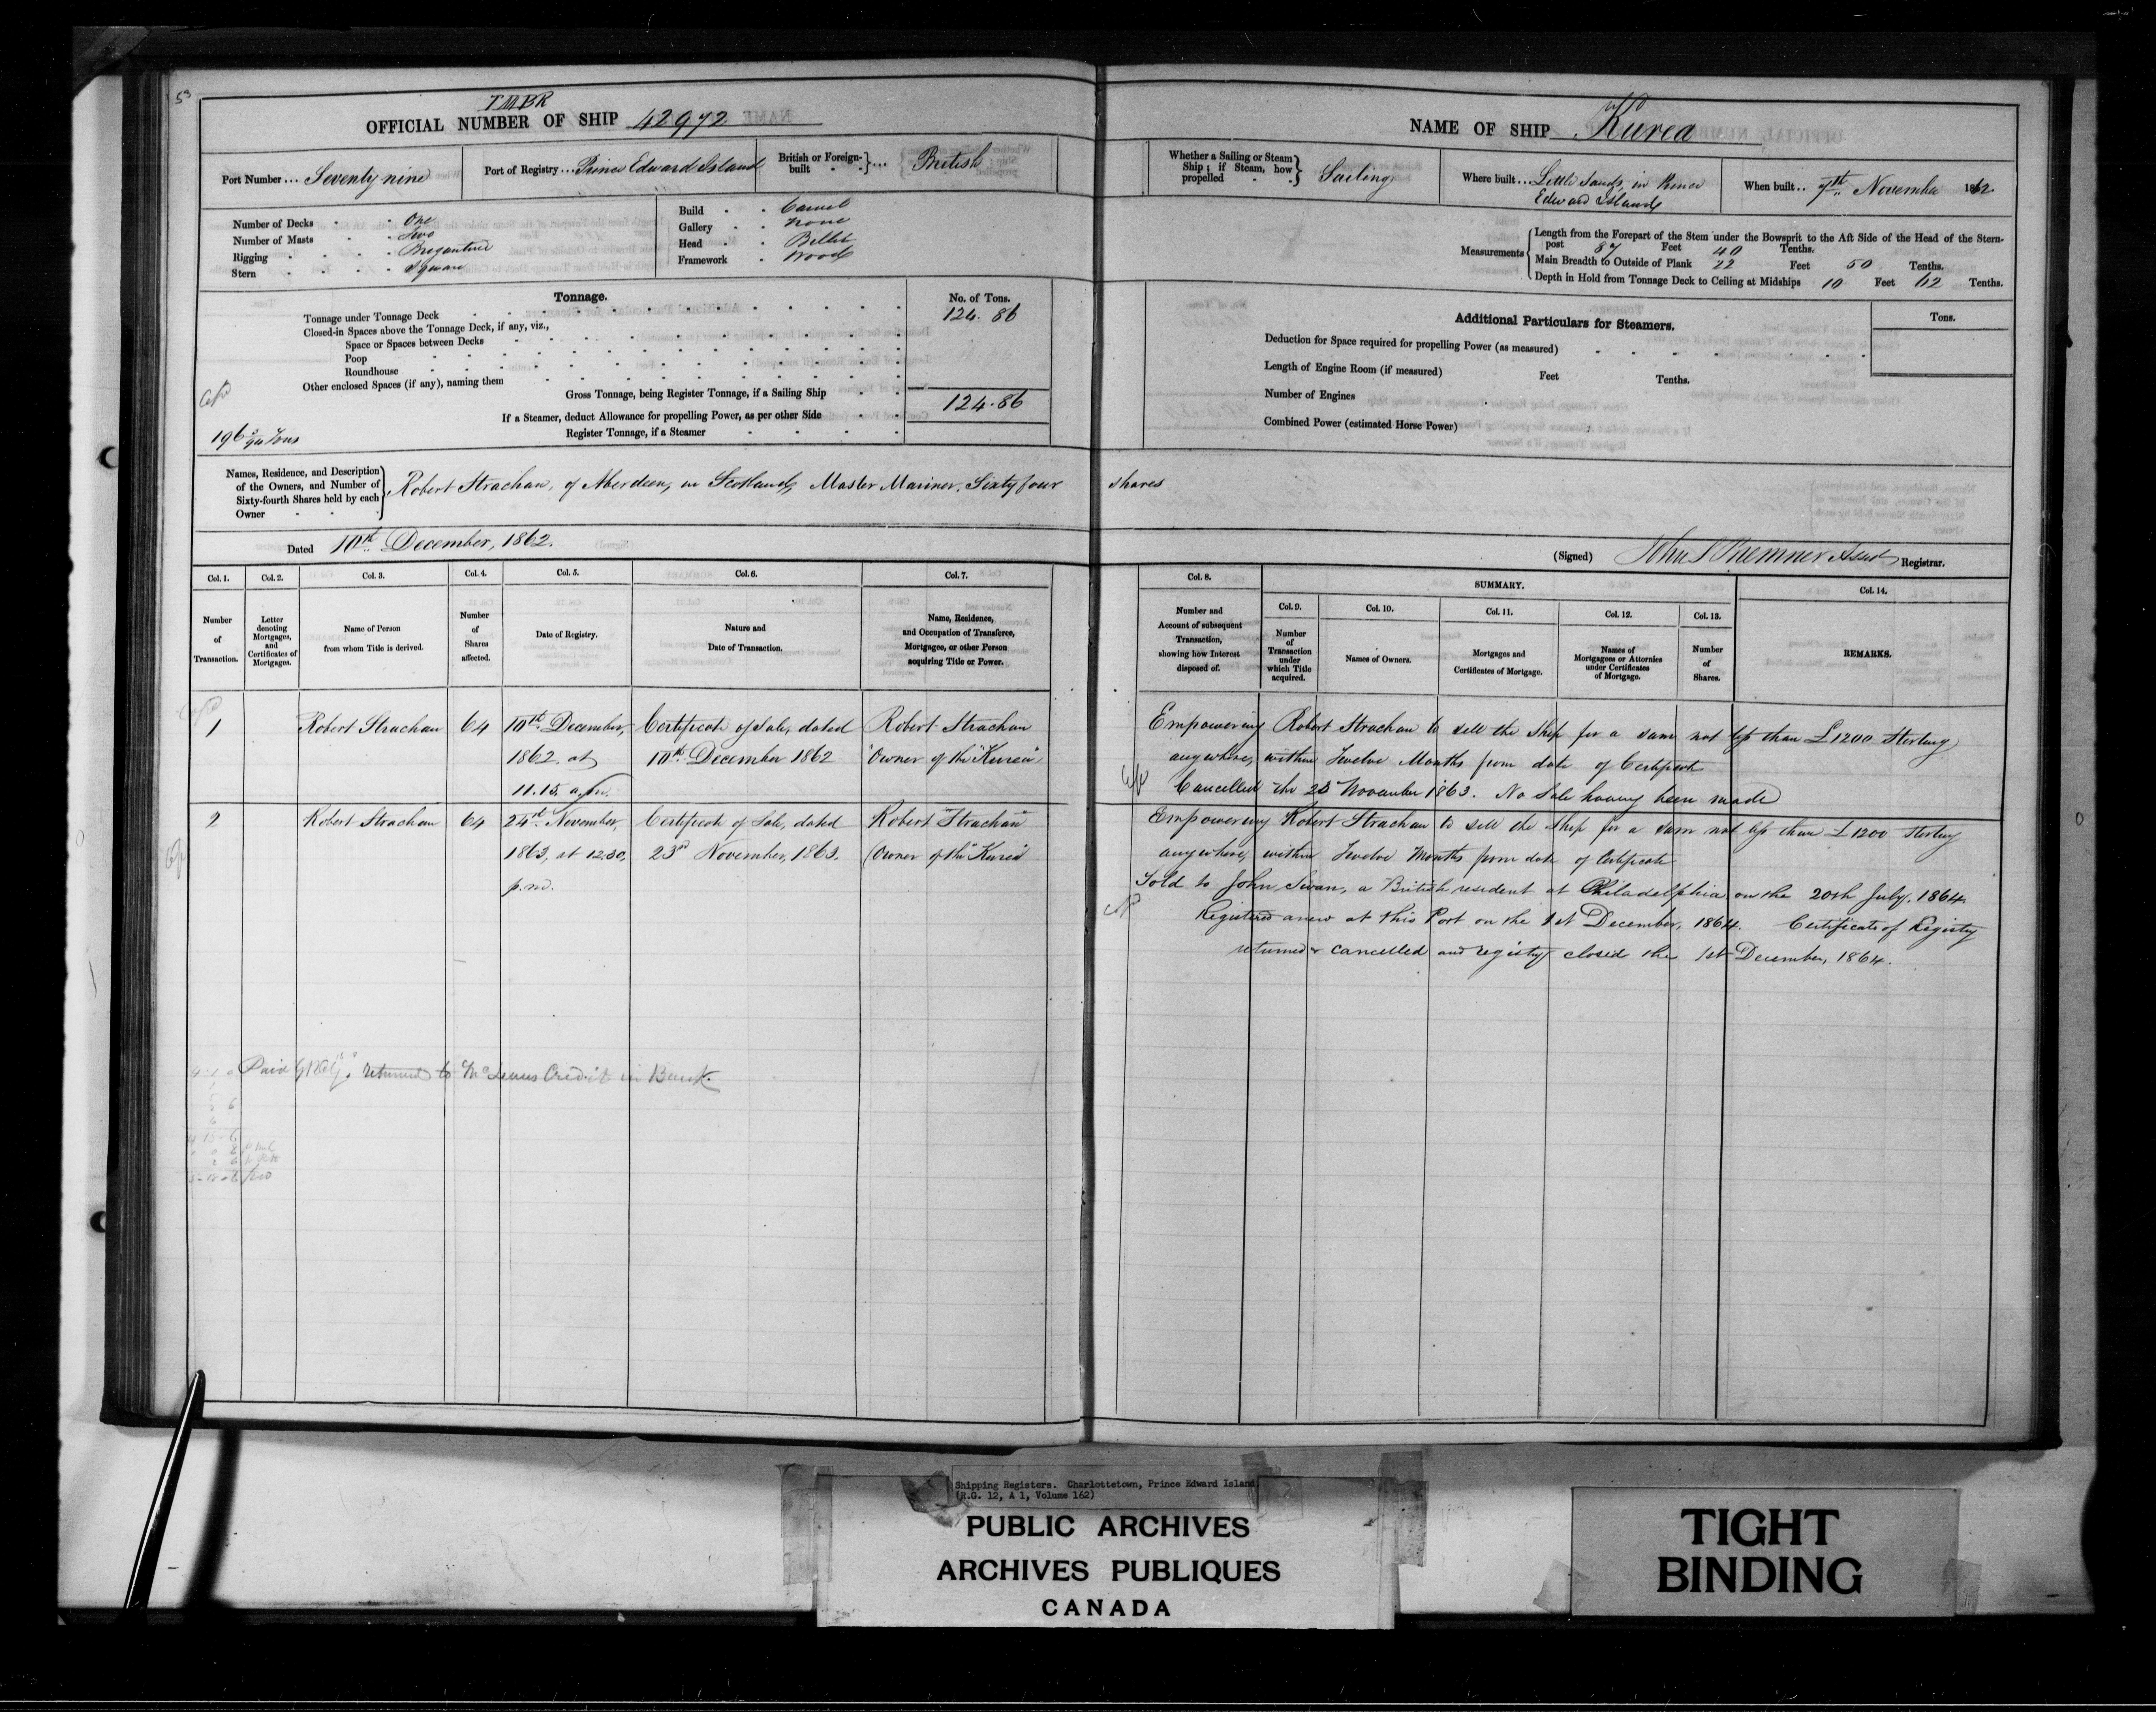 53
TMBR
OFFICIAL NUMBER OF SHIP 42972
Port Number... Seventy nine
Port of Registry... Prince Edward Island
British or Foreign-built } ... British
Number of Decks - - One
Number of Masts - - Two
Rigging - - - - Brigantine
Stern - - - - Square
Build - - Carvel
Gallery - - None
Head - - Billet
Framework - Wood
Tonnage.
No. of Tons.
Tonnage under Tonnage Deck 124.86
Closed-in Spaces above the Tonnage Deck, if any, viz.,
Space or Spaces between Decks
Poop
Roundhouse
Other enclosed Spaces (if any), naming them
Gross Tonnage, being Register Tonnage, if a Sailing Ship 124.86
If a Steamer, deduct Allowance for propelling Power, as per other Side
Register Tonnage, if a Steamer
Names, Residence, and Description
of the Owners, and Number of
Sixty-fourth Shares held by each
Owner
Robert Strachan, of Aberdeen, in Scotland, Master Mariner, Sixty four
Dated 10th December, 1862.
Col. 1. Col. 2. Col. 3. Col. 4. Col. 5. Col. 6. Col. 7.
Number of Transaction.
Letter denoting Mortgages, and Certificates of Mortgages.
Name of Person from whom Title is derived.
Number of Shares affected.
Date of Registry.
Nature and Date of Transaction.
Name, Residence, and Occupation of Transferee, Mortgagee, or other Person acquiring Title or Power.
1 Robert Strachan 64 10th December, Certificate of Sale, dated Robert Strachan
1862 at 10th December 1862 Owner of the "Kurea"
11.15. a.m.
2 Robert Strachan 64 24th November, Certificate of Sale, dated Robert Strachan
1863, at 12.30, 23rd November, 1863. (Owner of the "Kurea"
p.m.
returned to McLeans Credit in Bank.
NAME OF SHIP Kurea
Whether a Sailing or Steam
Ship; if Steam, how
propelled
Sailing
Where built... Little Sands, in Prince
Edward Island
When built.. 7th November 1862
Measurements
Length from the Forepart of the Stem under the Bowsprit to the Aft Side of the Head of the Stern-
post 87 Feet 40 Tenths.
Main Breadth to Outside of Plank 22 Feet 50 Tenths.
Depth in Hold from Tonnage Deck to Ceiling at Midships 10 Feet 62 Tenths.
Additional Particulars for Steamers.
Tons.
Deduction for Space required for propelling Power (as measured)
Length of Engine Room (if measured) Feet Tenths.
Number of Engines
Combined Power (estimated Horse Power)
shares
(Signed) John S Bremner Asst Registrar.
Col. 8.
SUMMARY.
Col. 14.
Col. 9. Col. 10. Col. 11. Col. 12. Col. 13.
Number and Account of subsequent Transaction, showing how Interest disposed of.
Number of Transaction under which Title acquired.
Names of Owners.
Mortgages and Certificates of Mortgage.
Names of Mortgagees or Attornies under Certificates of Mortgage.
Number of Shares.
REMARKS.
Empowering Robert Strachan to sell the Ship for a sum not less than £1200 Sterling
anywhere, within Twelve Months from date of Certificate
Cancelled the 23 November 1863. No Sale having been made
Empowering Robert Strachan to sell the Ship for a sum not less than £1200 Sterling
anywhere, within Twelve Months from date of Certificate
Sold to John Swan, a British resident at Philadelphia on the 20th July, 1864
Registered anew at this Port on the 1st December, 1864. Certificate of Registry
returned & cancelled and registry closed the 1st December, 1864.
Shipping Registers. Charlottetown, Prince Edward Island.
(R.G. 12, A 1, Volume 162)
PUBLIC ARCHIVES
ARCHIVES PUBLIQUES
CANADA
TIGHT
BINDING